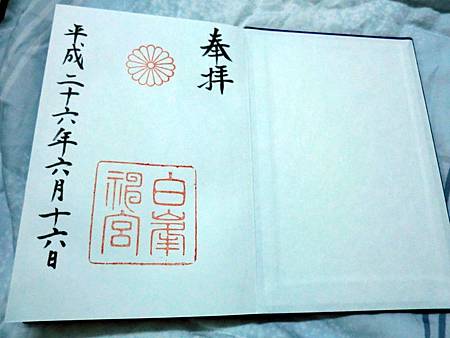 奉拝
白峯
神宮
平成二十六年六月十六日